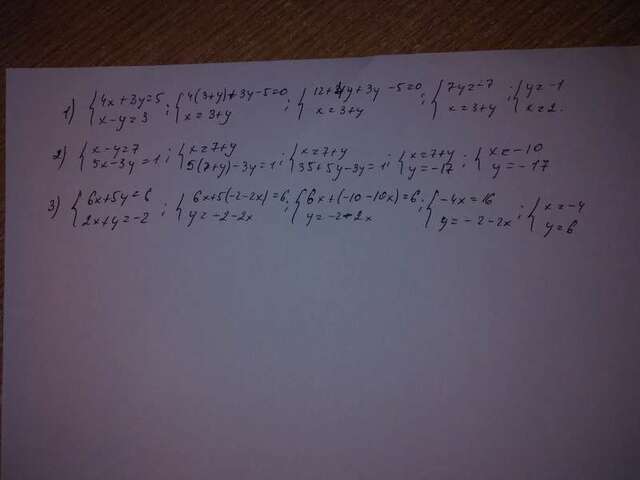 1) {4x+3y=5 x-y=3 ; {4(3+y)+3y-5=0 x=3+y ; {12+4y+3y-5=0 x=3+y ; {7y=-7 x=3+y ; {y=-1 x=2.
2) {x-y=7 5x-3y=1 ; {x=7+y 5(7+y)-3y=1 ; {x=7+y 35+5y-3y=1 ; {x=7+y y=-17 ; {x=-10 y=-17
3) {6x+5y=6 2x+y=-2 ; {6x+5(-2-2x)=6 y=-2-2x ; {6x+(-10-10x)=6 y=-2-2x ; {-4x=16 y=-2-2x ; {x=-4 y=6